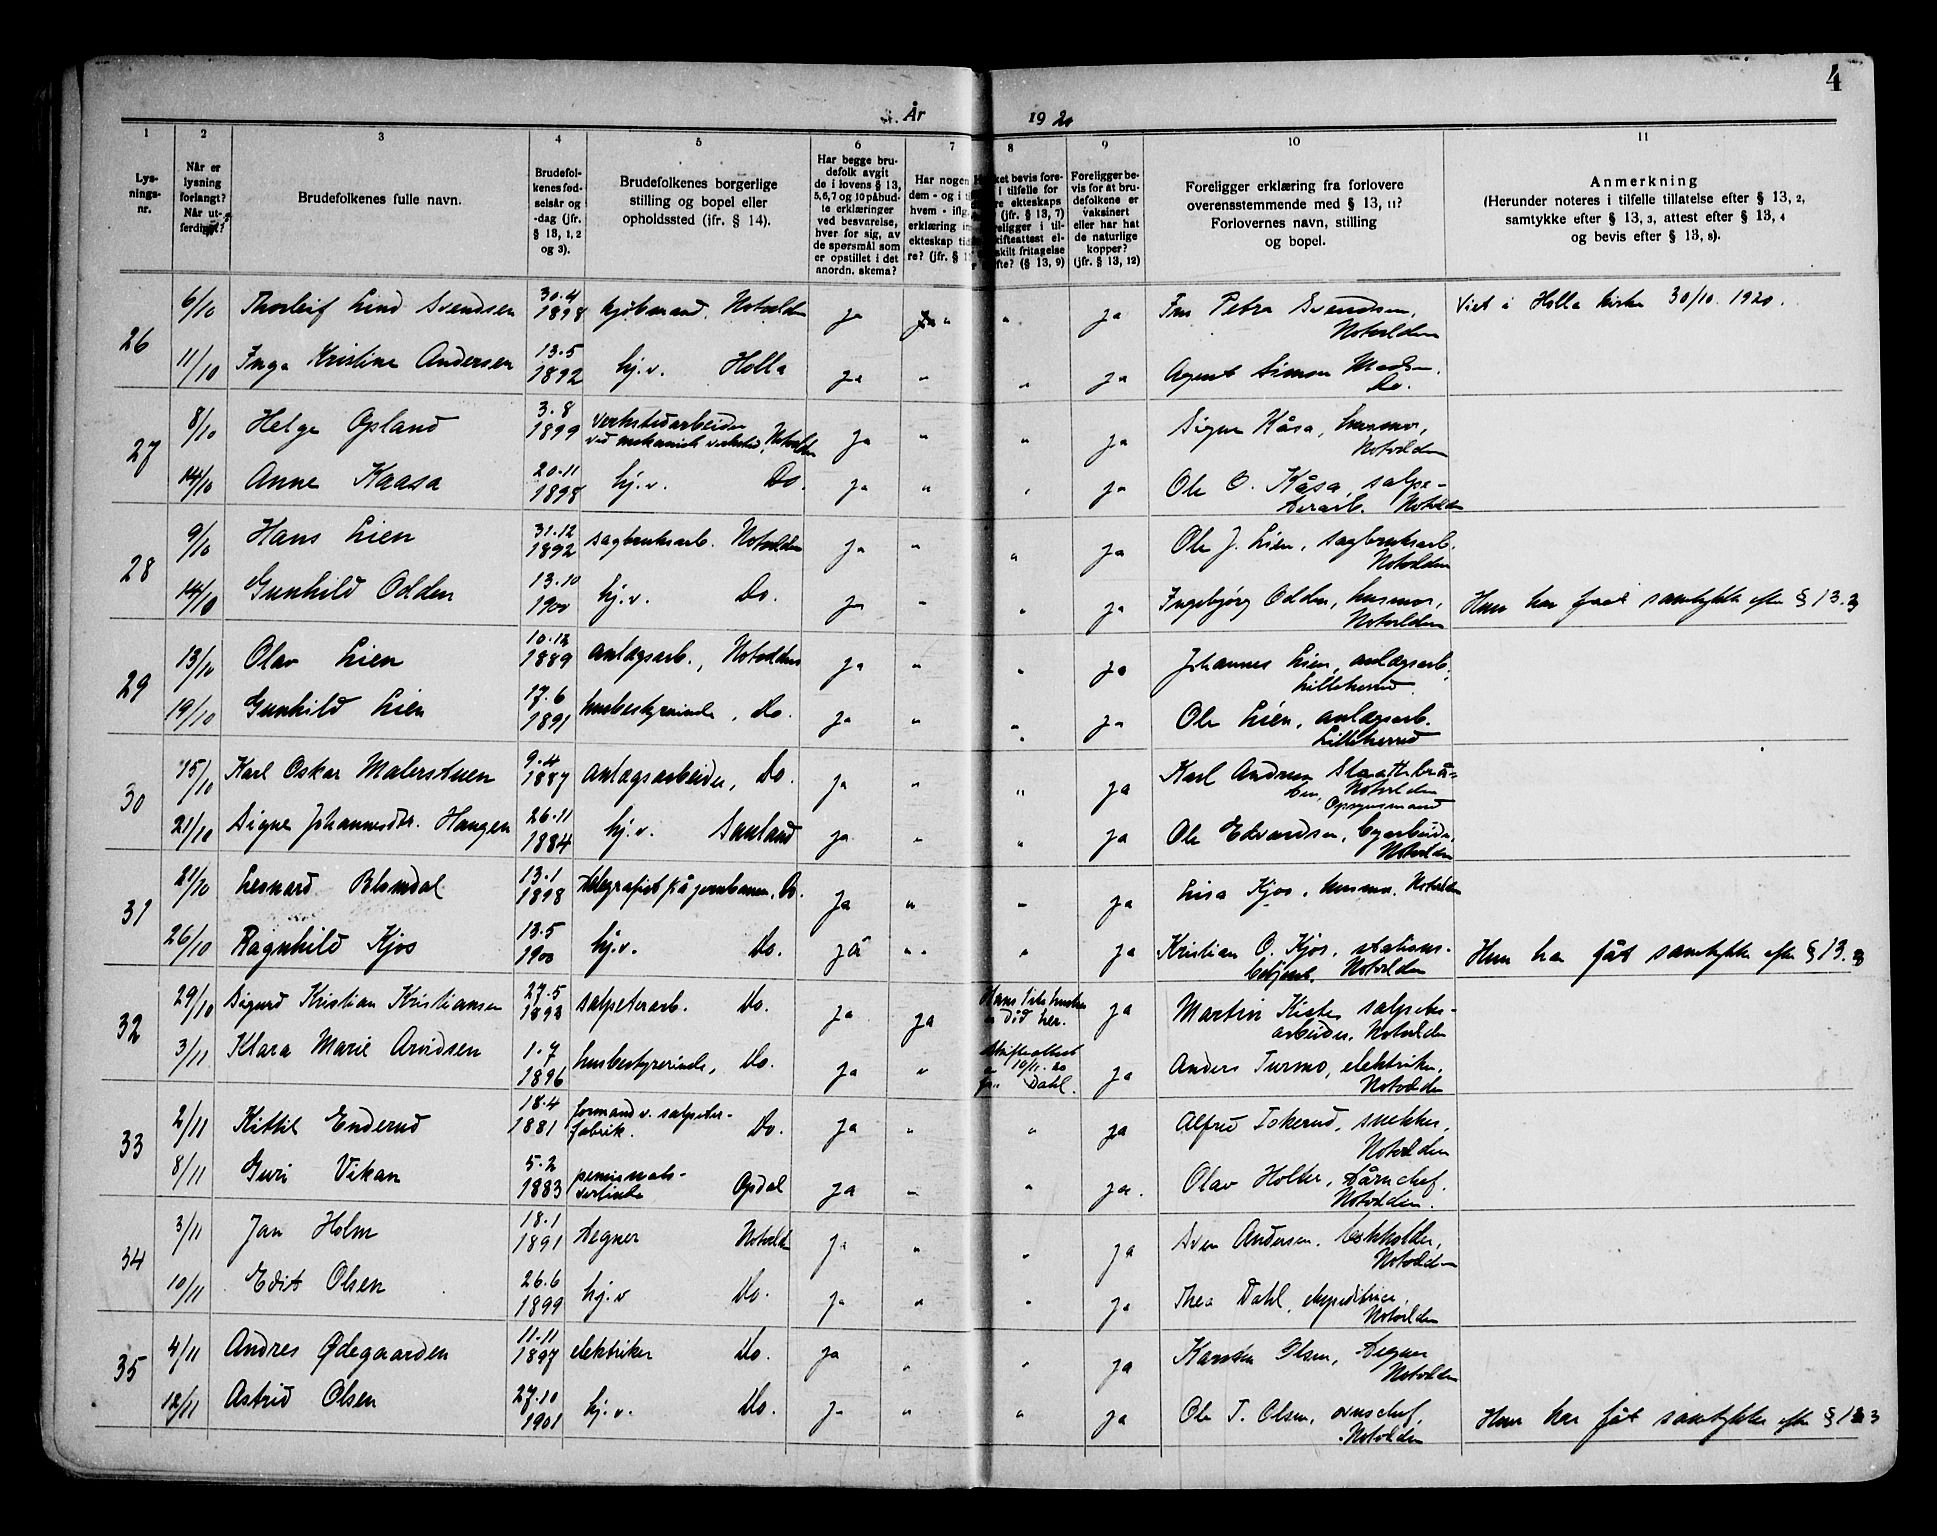 4
År 1920
1 2 3 4 5 6 7 8 9 10 11
Lysningsnr.
Når er lysning forlangt? Når utferdiget?
Brudefolkenes fulle navn.
Brudefolkenes fødselsår og -dag (jfr. § 13, 1, 2 og 3).
Brudefolkenes borgerlige stilling og bopel eller opholdssted (ifr. § 14).
Har begge brudefolk avgit de i lovens § 13, 5, 6, 7 og 10 påbudte erklæringer ved besvarelse, hver for sig, av de spørsmål som er opstillet i det anordn. skema?
Har nogen
dem - og i t
hvem - iflg.
erklæring in
ekteskap tid
re? (jfr. § 1
ket bevis fore-
i tilfelle for
re ekteskaps
(jfr. § 13, 7)
religger i til-
kifteattest el-
skilt fritagelse
fte? (§ 13, 9)
Foreligger bevis for at brudefolkene er vaksinert eller har hat de naturlige kopper? (jfr. § 13, 12)
Foreligger erklæring fra forlovere overensstemmende med § 13, 11? Forlovernes navn, stilling og bopel.
Anmerkning
(Herunder noteres i tilfelle tillatelse efter § 13, 2, samtykke efter § 13, 3, attest efter § 13, 4 og bevis efter § 13, 8).
26 6/10 Thorleif Lind Svendsen 30.4 1898 kjøbmand, Notodden ja ja " " ja Fru Petra Svendsen, Notodden Viet i Holla kirke 30/10. 1920.
11/10 Inga Kristine Andersen 13.5 1892 hj.v. Holla ja " " ja Agent Simon Madsen. Do.
27 8/10 Helge Opland 3.8 1899 verkstedarbeider ved mekanisk verksted, Notodden ja " " ja Signe Kåsa, husmor, Notodden
14/10 Anne Kaasa 20.11 1898 hj.v. Do. ja " " ja Ole O. Kåsa, salpeterarb. Notodden
28 9/10 Hans Lien 31.12 1892 sagbruksarb. Notodden ja " " ja Ole J. Lien, sagbruksarb. Notodden
14/10 Gunhild Odden 13.10 1900 hj.v. Do. ja " " ja Ingebjørg Odden, husmor, Notodden Hun har faat samtykke efter § 13.3
29 13/10 Olav Lien 10.12 1889 anlægsarb., Notodden ja " " ja Johannes Lien, anlægsarb., Lilleherred.
19/10 Gunhild Lien 17.6 1891 husbestyrerinde, Do. ja " " ja Ole Lien, anlægsarb. Lilleherred
30 15/10 Karl Oskar Malerstuen 9.4 1887 anlægsarbeider, Do. ja " " ja Karl Andreas Notodden Opsynsmand
21/10 Signe Johannesdtr. Haugen 26.11 1884 hj.v. Sauland ja " " ja Ole Edvardsen, byarbeider, Notodden
31 21/10 Leonard Blomdal 13.1 1898 telegrafist på jernbanen, Do. ja " " ja Lisa Kjos, husmor. Notodden
26/10 Ragnhild Kjos 13.5 1900 hj.v. Do. ja " " ja Kristian O. Kjos, stationsbetjent. Notodden Hun har fåt samtykke efter § 13.3
32 29/10 Sigurd Kristian Kristiansen 27.5 1893 salpeterarb. Do. ja ja Hans første hustru død her. ja Martin Kister salpeterarbeider, Notodden
3/11 Klara Marie Arvidsen 1.7 1896 husbestyrerinde, Do. ja " Skifteattest 10/11.20 Dahl. ja Anders Turmo, elektriker, Notodden
33 2/11 Kittil Enderud 18.4 1881 formand v. salpeterfabrik. Do. ja " " ja Alfred Tokerud, snekker, Notodden
8/11 Guri Vikan 5.2 1883 pensionatsvertinde Opdal ja " " ja. Olav Holter, tårnchef, Notodden.
34 3/11 Jan Holm 18.1 1891 tegner Notodden ja " " ja Sven Andersen, bokholder, Notodden
10/11 Edit Olsen 26.6 1899 hj.v Do. ja " " ja Thea Dahl, ekspeditrice, Notodden
35 4/11 Andres Ødegaarden 11.11 1897 elektriker Do. ja " " ja Karsten Olsen, tegner Notodden
12/11 Astrid Olsen 27.10 1901 hj.v. Do. ja " " ja Ole T. Olsen, ovnschef, Notodden Hun har fåt samtykke efter § 13 3